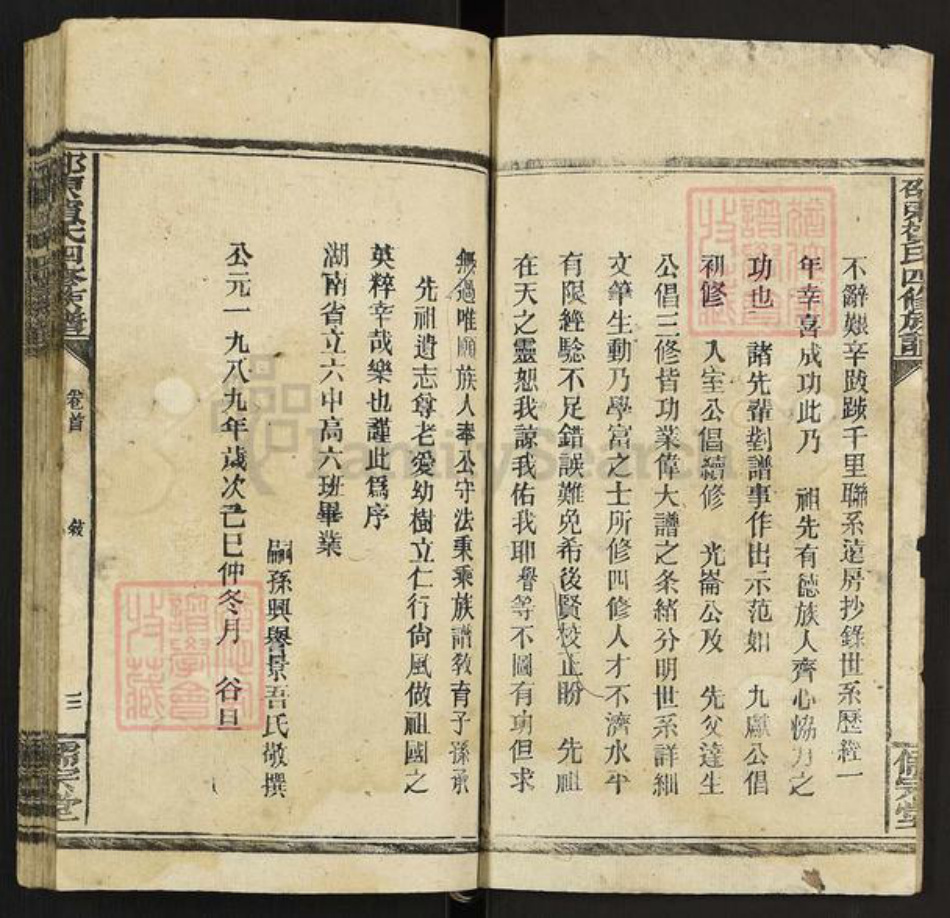 不辭艱辛跋踄千里聯系遠房抄錄世系歷經一
年幸喜成功此乃 祖先有德族人齊心恊力之
功也 諸先輩剏譜事作出示范如 九獻公倡
初修 入室公倡續修 光崙公及 先父達生
公倡三修皆功業偉大譜之条緒分明世系詳細
文筆生動乃學富之士所修四修人才不濟水平
有限經騐不足錯誤難免希後賢校正盼 先祖
在天之靈恕我諒我佑我耶譽等不圖有功但求
無過唯願族人奉公守法秉乘族譜敎育子孫承
先祖遺志尊老愛幼樹立仁行尙風做祖國之
英粹幸哉樂也謹此爲序
湖南省立六中高六班畢業
嗣孫興譽景吾氏敬撰
公元一九八九年歲次己巳仲冬月 谷旦
四修族譜
卷首
敘
三
儒宗堂
FamilySearch